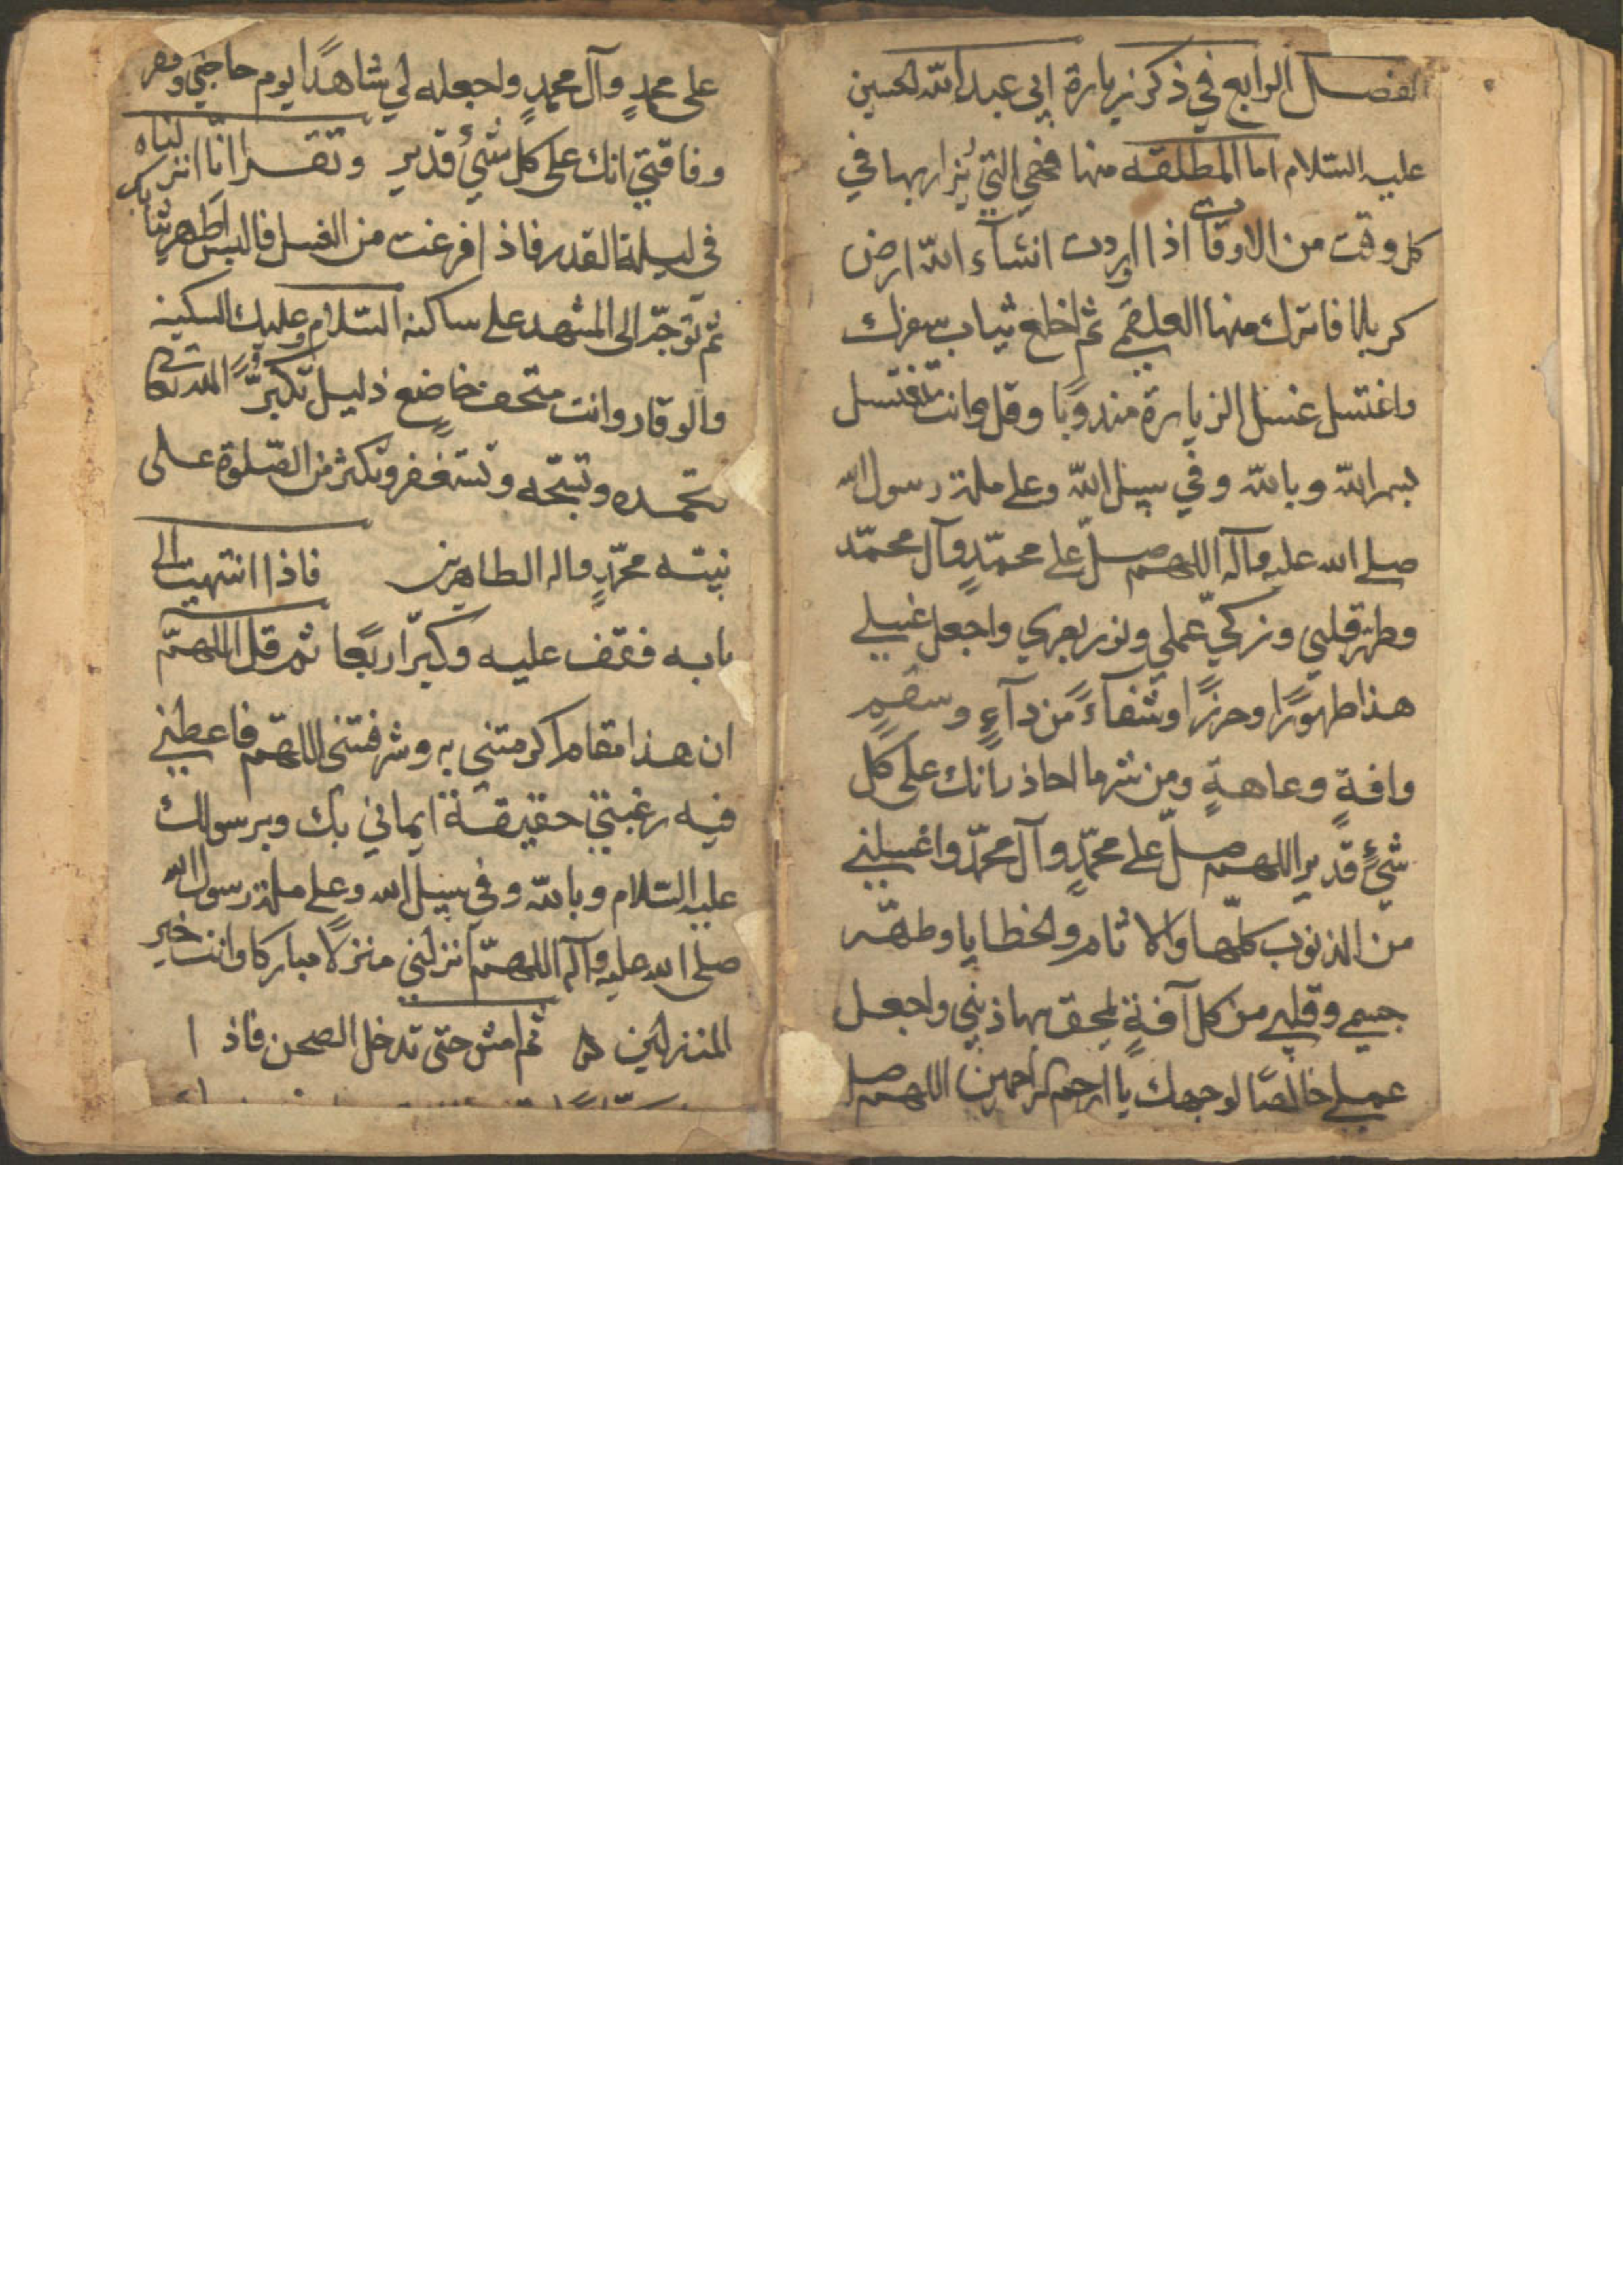 الفصل الرابع في ذكر زيارة ابي عبد الله الحسين
عليه السلام اما المطلقه منها فهي التي يُزار بها في
كل وقت من الاوقات اذا اردت انشآء الله ارض
كربلا فانزل منها العلقمي ثم اخلع ثياب سفرك
واغتسل غسل الزيارة مندوبًا وقل وانت تغتسل
بسم الله وبالله وفي سبيل الله وعلى ملة رسول الله
صلى الله عليه وآله اللهم صلّ على محمّدٍ وآل محمّد
وطهّر قلبي وزكّي عملي ونور بصري واجعل غسلي
هذا طهورًا وحرزًا وشفآءً من دآءٍ وسقمٍ
وافةٍ وعاهةٍ ومن شر ما احاذر انك على كل
شيءٍ قدير اللهم صلّ على محمّدٍ وآل محمّد واغسلني
من الذنوب كلّها والاثام والخطايا وطهّر
جسمي وقلبي من كل آفةٍ تمحق بها ديني واجعل
عملي خالصًا لوجهك يا ارحم الراحمين اللهم صل
على محمدٍ وآل محمدٍ واجعله لي شاهدًا يوم حاجتي وفقر
وفاقتي انك على كل شيءٍ قدير وتقرا انّا انزلناه
في ليلة القدر فاذا فرغت من الغسل فالبس اطهر ثيابك
ثم توجّه الى المشهد على ساكنه السلام وعليك السكينه
والوقار وانت خاضع ذليل تكبّر الله تعالى
تحمده وتسبّحه وتستغفر وتكثر من الصّلوة على
نبيّه محمّدٍ واله الطاهرين فاذا انتهيت الى
بابه فقف عليه وكبّر اربعًا ثم قل اللهمّ
ان هذا مقام اكرمتني به وشرفتني اللهمّ فاعطني
فيه رغبتي حقيقة ايماني بك وبرسولك
عليه السلام وبالله وفي سبيل الله وعلى ملة رسول الله
صلى الله عليه وآله اللهمّ انزلني منزلًا مباركا وانت خير
المنزلين ثم امش حتى تدخل الصحن فاذا